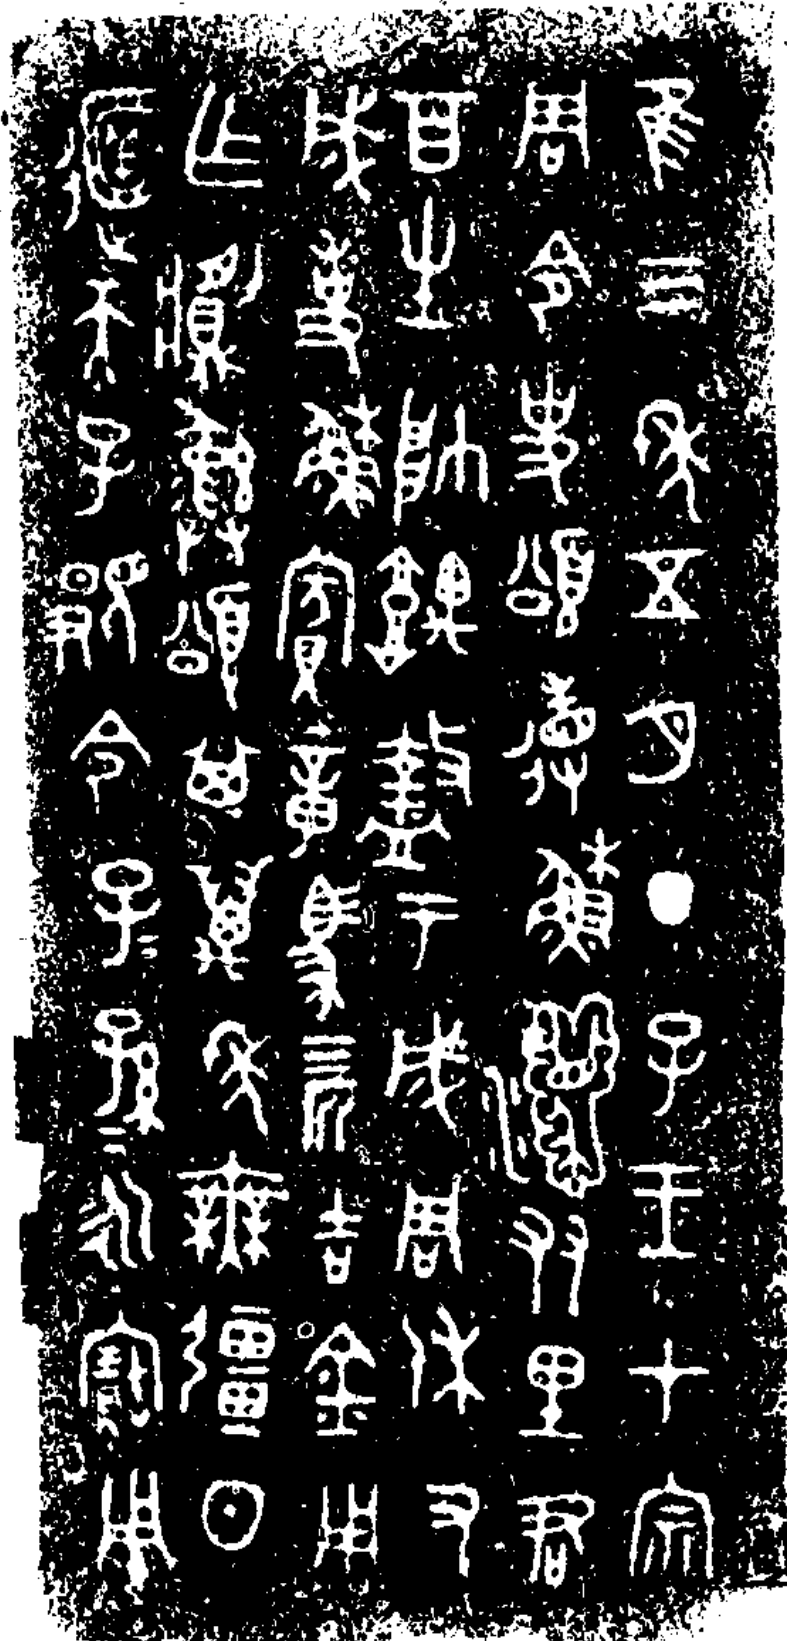 隹三年五月丁子王才宗
周令史頌省穌友里君
百生帥盩于成周休又
成事穌賓章馬亖匹吉金用
乍彝頌其萬年無彊日
天子令子=孫=永寶用